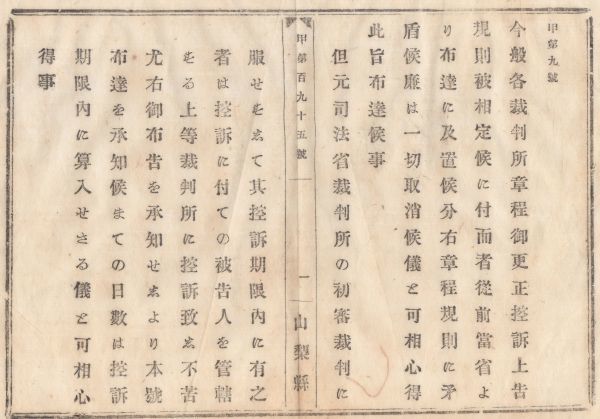 甲第九號
今般各裁判所章程御更正控訴上告
規則被相定候に付而者從前當省よ
り布達に及置候分右章程規則に矛
盾候廉は一切取消候儀と可相心得
此旨布達候事
但元司法省裁判所の初審裁判に
甲第百九十五號
一
山梨縣
服せすゑて其控訴期限內に有之
者は控訴に付ての被告人を管轄
する上等裁判所に控訴致ゑ不苦
尤右御布告を承知せゑより本號
布達を承知候まての日數は控訴
期限內に算入せさる儀と可相心
得事